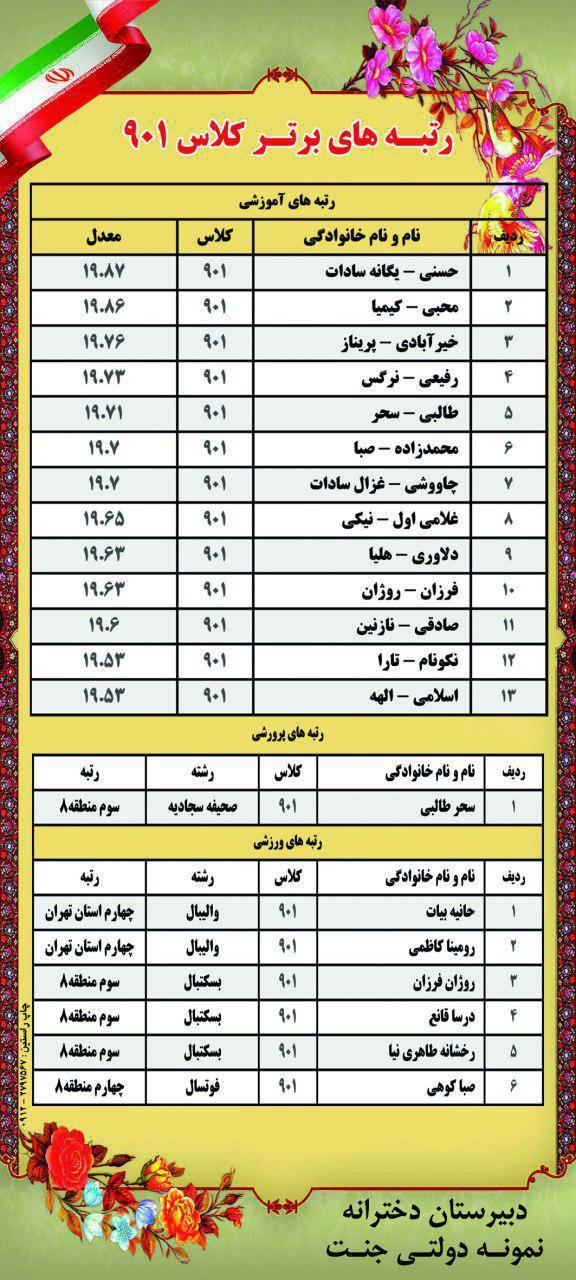 رتبه های برتر کلاس ۹۰۱
رتبه های آموزشی
ردیف نام و نام خانوادگی کلاس معدل
۱ حسنی - یگانه سادات ۹۰۱ ۱۹.۸۷
۲ محبی - کیمیا ۹۰۱ ۱۹.۸۶
۳ خیرآبادی - پریناز ۹۰۱ ۱۹.۷۶
۴ رفیعی - نرگس ۹۰۱ ۱۹.۷۳
۵ طالبی - سحر ۹۰۱ ۱۹.۷۱
۶ محمدزاده - صبا ۹۰۱ ۱۹.۷
۷ چاووشی - غزال سادات ۹۰۱ ۱۹.۷
۸ غلامی اول - نیکی ۹۰۱ ۱۹.۶۵
۹ دلاوری - هلیا ۹۰۱ ۱۹.۶۳
۱۰ فرزان - روژان ۹۰۱ ۱۹.۶۳
۱۱ صادقی - نازنین ۹۰۱ ۱۹.۶
۱۲ نکونام - تارا ۹۰۱ ۱۹.۵۳
۱۳ اسلامی - الهه ۹۰۱ ۱۹.۵۳
رتبه های پرورشی
ردیف نام و نام خانوادگی کلاس رشته رتبه
۱ سحر طالبی ۹۰۱ صحیفه سجادیه سوم منطقه۸
رتبه های ورزشی
ردیف نام و نام خانوادگی کلاس رشته رتبه
۱ حانیه بیات ۹۰۱ والیبال چهارم استان تهران
۲ رومینا کاظمی ۹۰۱ والیبال چهارم استان تهران
۳ روژان فرزان ۹۰۱ بسکتبال سوم منطقه۸
۴ درسا قانع ۹۰۱ بسکتبال سوم منطقه۸
۵ رخشانه طاهری نیا ۹۰۱ بسکتبال سوم منطقه۸
۶ صبا کوهی ۹۰۱ فوتسال چهارم منطقه۸
چاپ راستین : ۲۷۹۷۵۶۷ - ۰۹۱۲
دبیرستان دخترانه
نمونه دولتی جنت